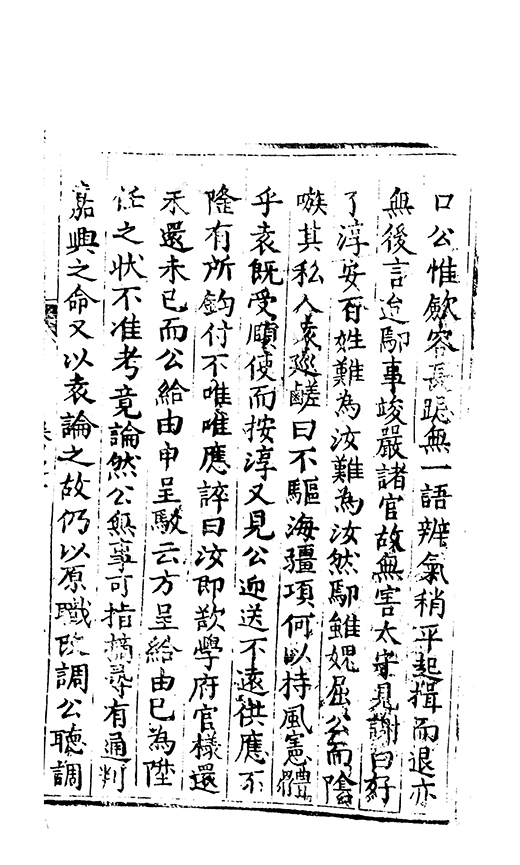 口公惟歛容長跽無一語辨氣稍平起揖而退亦
無後言迨鄢事竣嚴諸官故無害太守見謝曰好
了淳安百姓難為汝難為汝然鄢雖媿屈公而陰
嗾其私人袁廵鹺曰不驅海疆項何以持風憲體
乎袁既受頤使而按淳又見公迎送不遠供應不
隆有所鈎付不唯唯應誶曰汝即欲學府官樣還
未還未已而公給由申呈駁云方呈給由已為陞
任之状不准考竟論然公無事可指摘尋有通判
嘉興之命又以袁論之故仍以原職改調公聽調